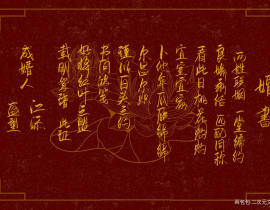 婚書
两姓联姻 一堂缔约
良缘永结 匹配同称
看此日桃花灼灼
宜室宜家
卜他年瓜瓞绵绵
尔昌尔炽
谨以白头之约
书向鸿笺
好将红叶之盟
载明鸳谱 此证
成婚人 江添
盛望
画包包二次元文